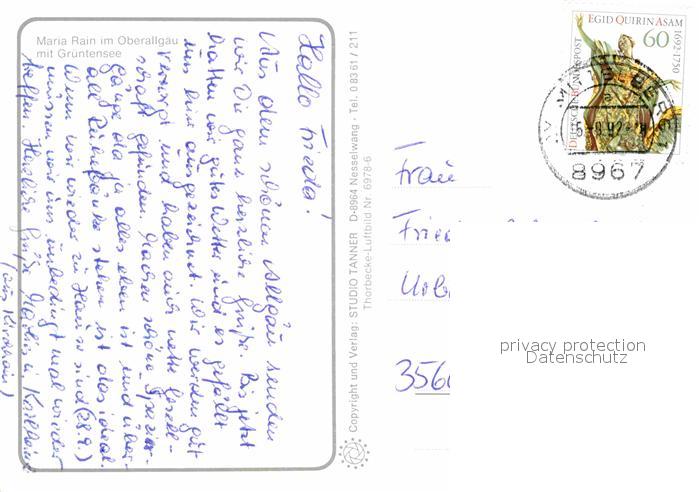 Maria Rain im Oberallgäu
mit Grüntensee
Hallo Frieda!
Aus dem schönen Allgäu senden
wir Dir ganz herzliche Grüße. Bis jetzt
hatten wir gutes Wetter und es gefällt
uns hier ausgezeichnet. Wir werden gut
versorgt und haben auch nette Gesell-
schaft gefunden. Machen schöne Spazier-
gänge da ja alles eben ist und über-
all Ruhebänke stehen ist das ideal.
Wenn wir wieder zu Hause sind (28.9.)
müssen wir uns unbedingt mal wieder
treffen. Herzliche Grüße
(aus Kirchhain)
Copyright und Verlag: STUDIO TANNER D-8964 Nesselwang · Tel. 0 83 61 / 211
Thorbecke-Luftbild Nr. 6978-6
EGID QUIRIN ASAM
1692-1750
60
DEUTSCHE BUNDESPOST
8967
Frau
Fried
356
privacy protection
Datenschutz